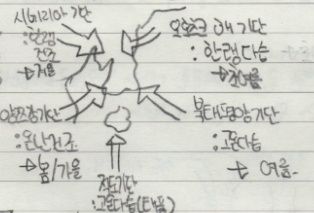 시베리아 기단
: 한랭
건조
→ 겨울
오호츠크 해기단
: 한랭다습
→ 초여름
양쯔강기단
: 온난건조
→ 봄/가을
북태평양기단
: 고온다습
→ 여름
적도기단
: 고온다습(태풍)